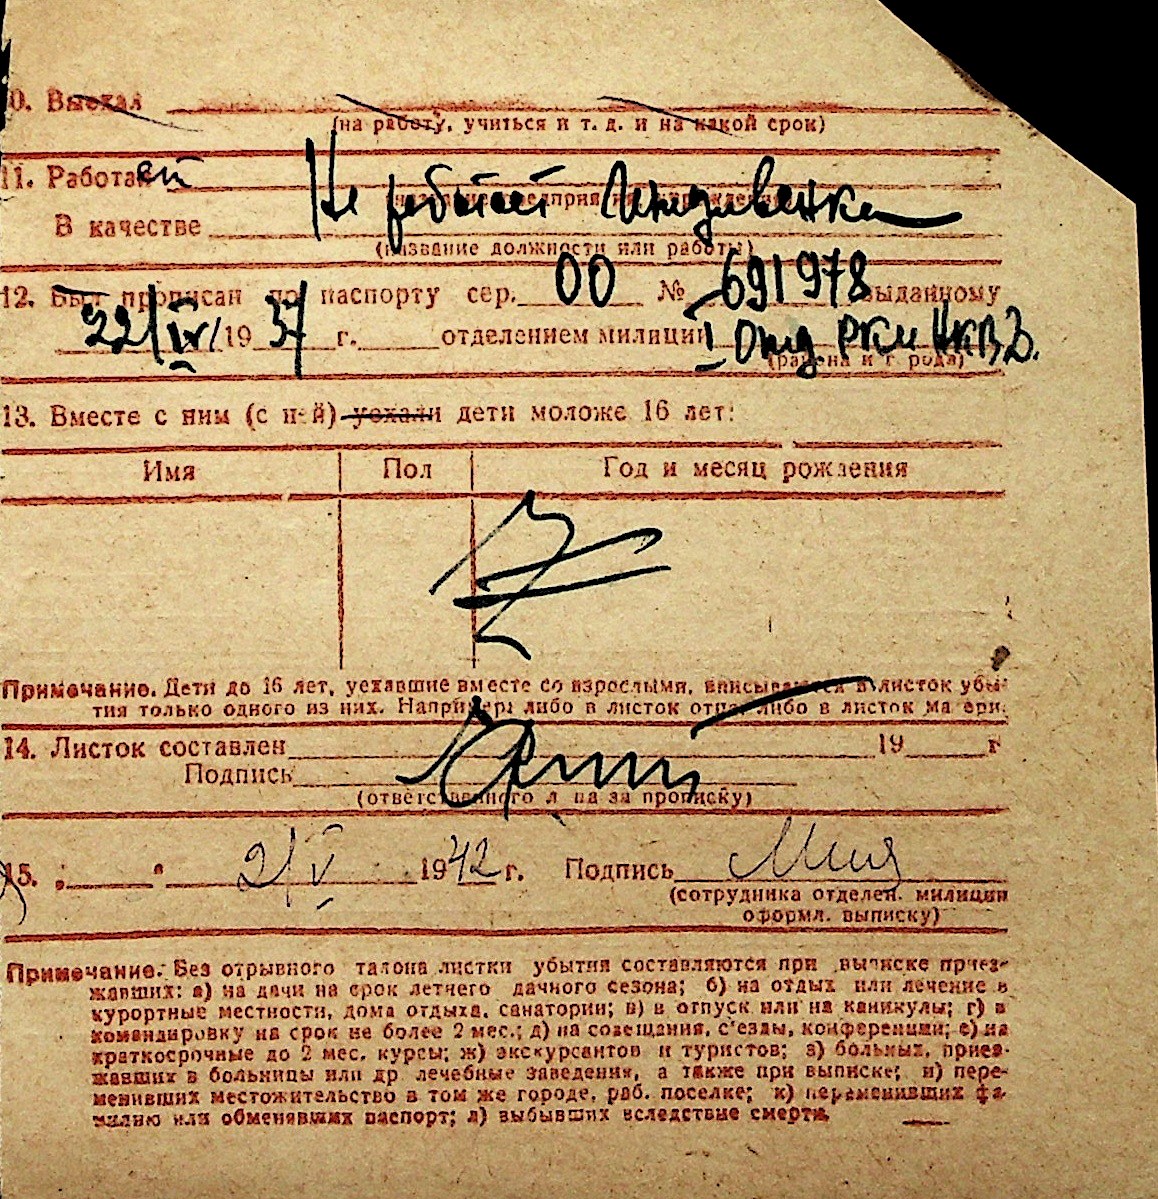 10. Выехал
(на работу, учиться и т. д. и на какой срок)
11. Работает Не работает Иждивенка
В качестве
(название должности или работы)
12. Был прописан по паспорту сер. 00 № 691978 выданному
22/IV/1937 г. отделением милиции I Отд РКМ НКВД.
(района и города)
13. Вместе с ним (с ней) уехали дети моложе 16 лет:
Имя Пол Год и месяц рождения
Примечание. Дети до 16 лет, уехавшие вместе со взрослыми, вписываются в листок убы-
тия только одного из них. Например: либо в листок отца, либо в листок матери.
14. Листок составлен 19 г
Подпись
(ответственного лица за прописку)
15. „ " 2/V 1942 г. Подпись
(сотрудника отделен. милиции
оформл. выписку)
Примечание. Без отрывного талона листки убытия составляются при выписке приез-
жавших: а) на дачи на срок летнего дачного сезона; б) на отдых или лечение в
курортные местности, дома отдыха, санатории; в) в отпуск или на каникулы; г) в
командировку на срок не более 2 мес.; д) на совещания, с'езды, конференции; е) на
краткосрочные до 2 мес. курсы; ж) экскурсантов и туристов; з) больных, приез-
жавших в больницы или др лечебные заведения, а также при выписке; и) пере-
менивших местожительство в том же городе, раб. поселке; к) переменивших фа-
милию или обменявших паспорт; л) выбывших вследствие смерти.